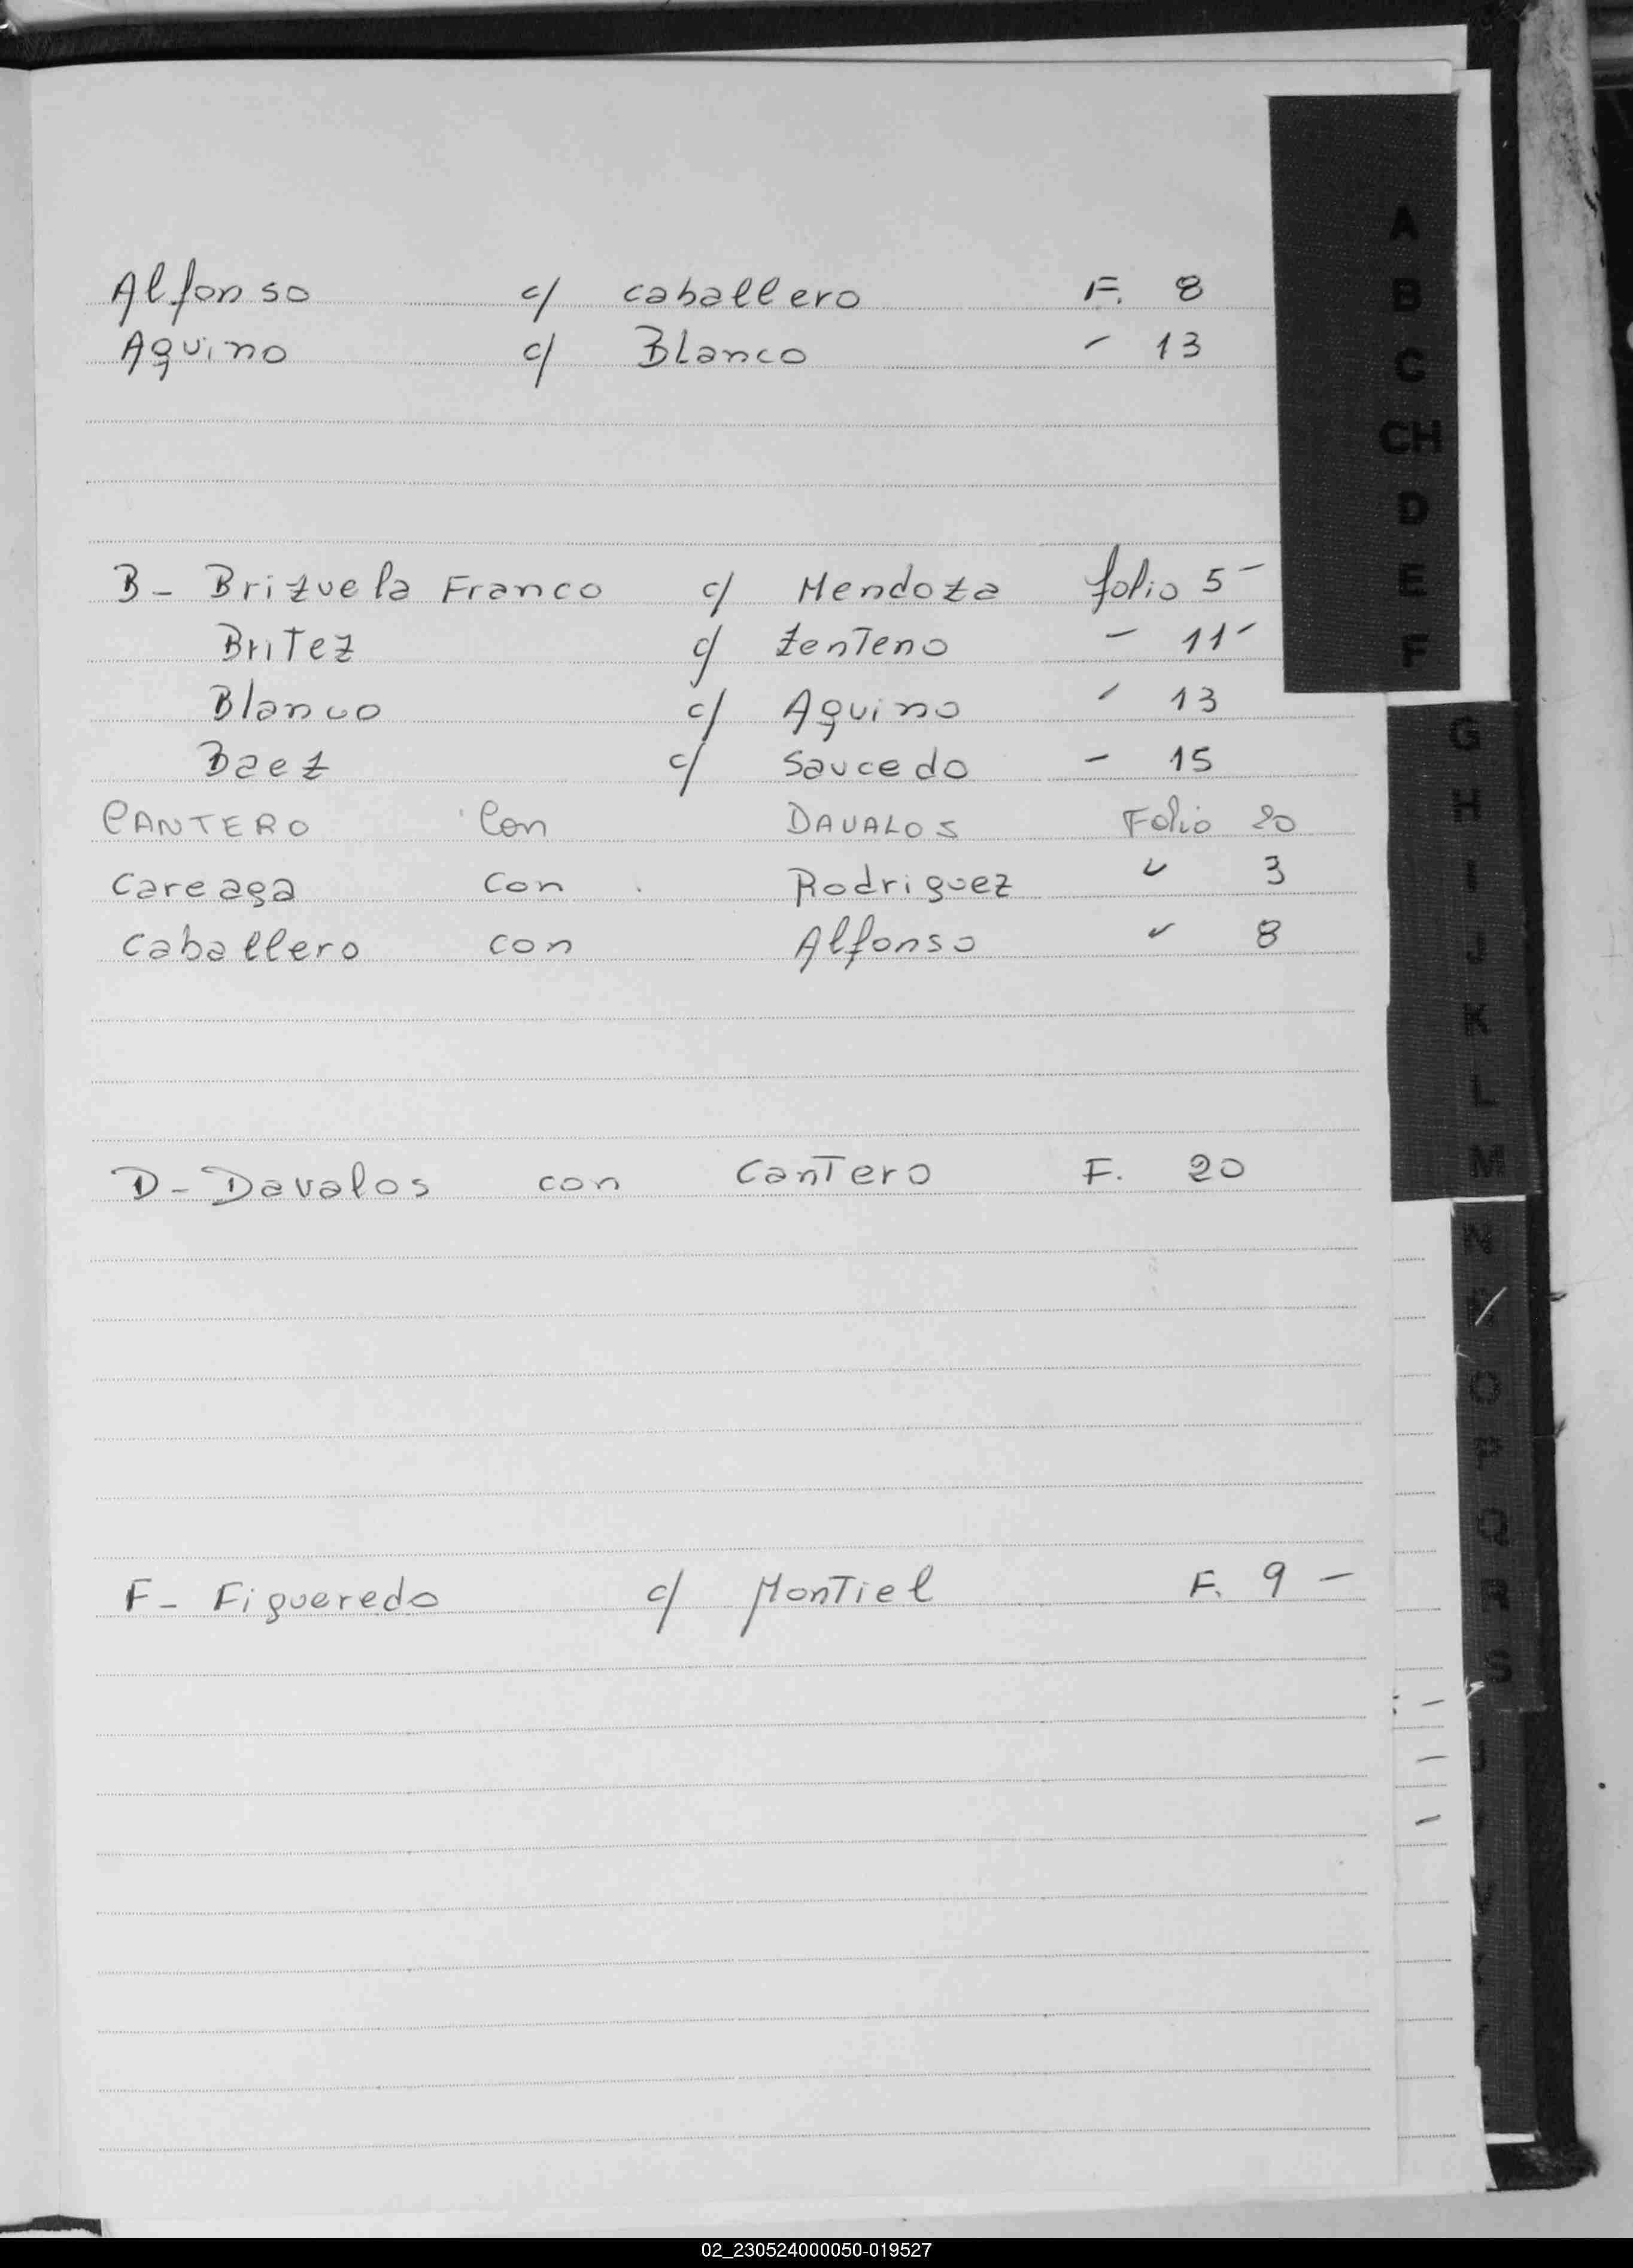 Alfonso c/ caballero F. 8
Aquino c/ Blanco - 13
B- Brizuela Franco c/ Mendoza folio 5-
Britez c/ Zenteno - 11-
Blanco c/ Aquino - 13
Baez c/ Saucedo - 15
CANTERO Con DAVALOS Folio 20
Careaga con Rodriguez " 3
Caballero con Alfonso " 8
D- Davalos con Cantero F. 20
F- Figueredo c/ Montiel F. 9 -
A
B
C
CH
D
E
F
G
H
I
J
K
L
M
N
O
P
Q
R
S
02_230524000050-019527